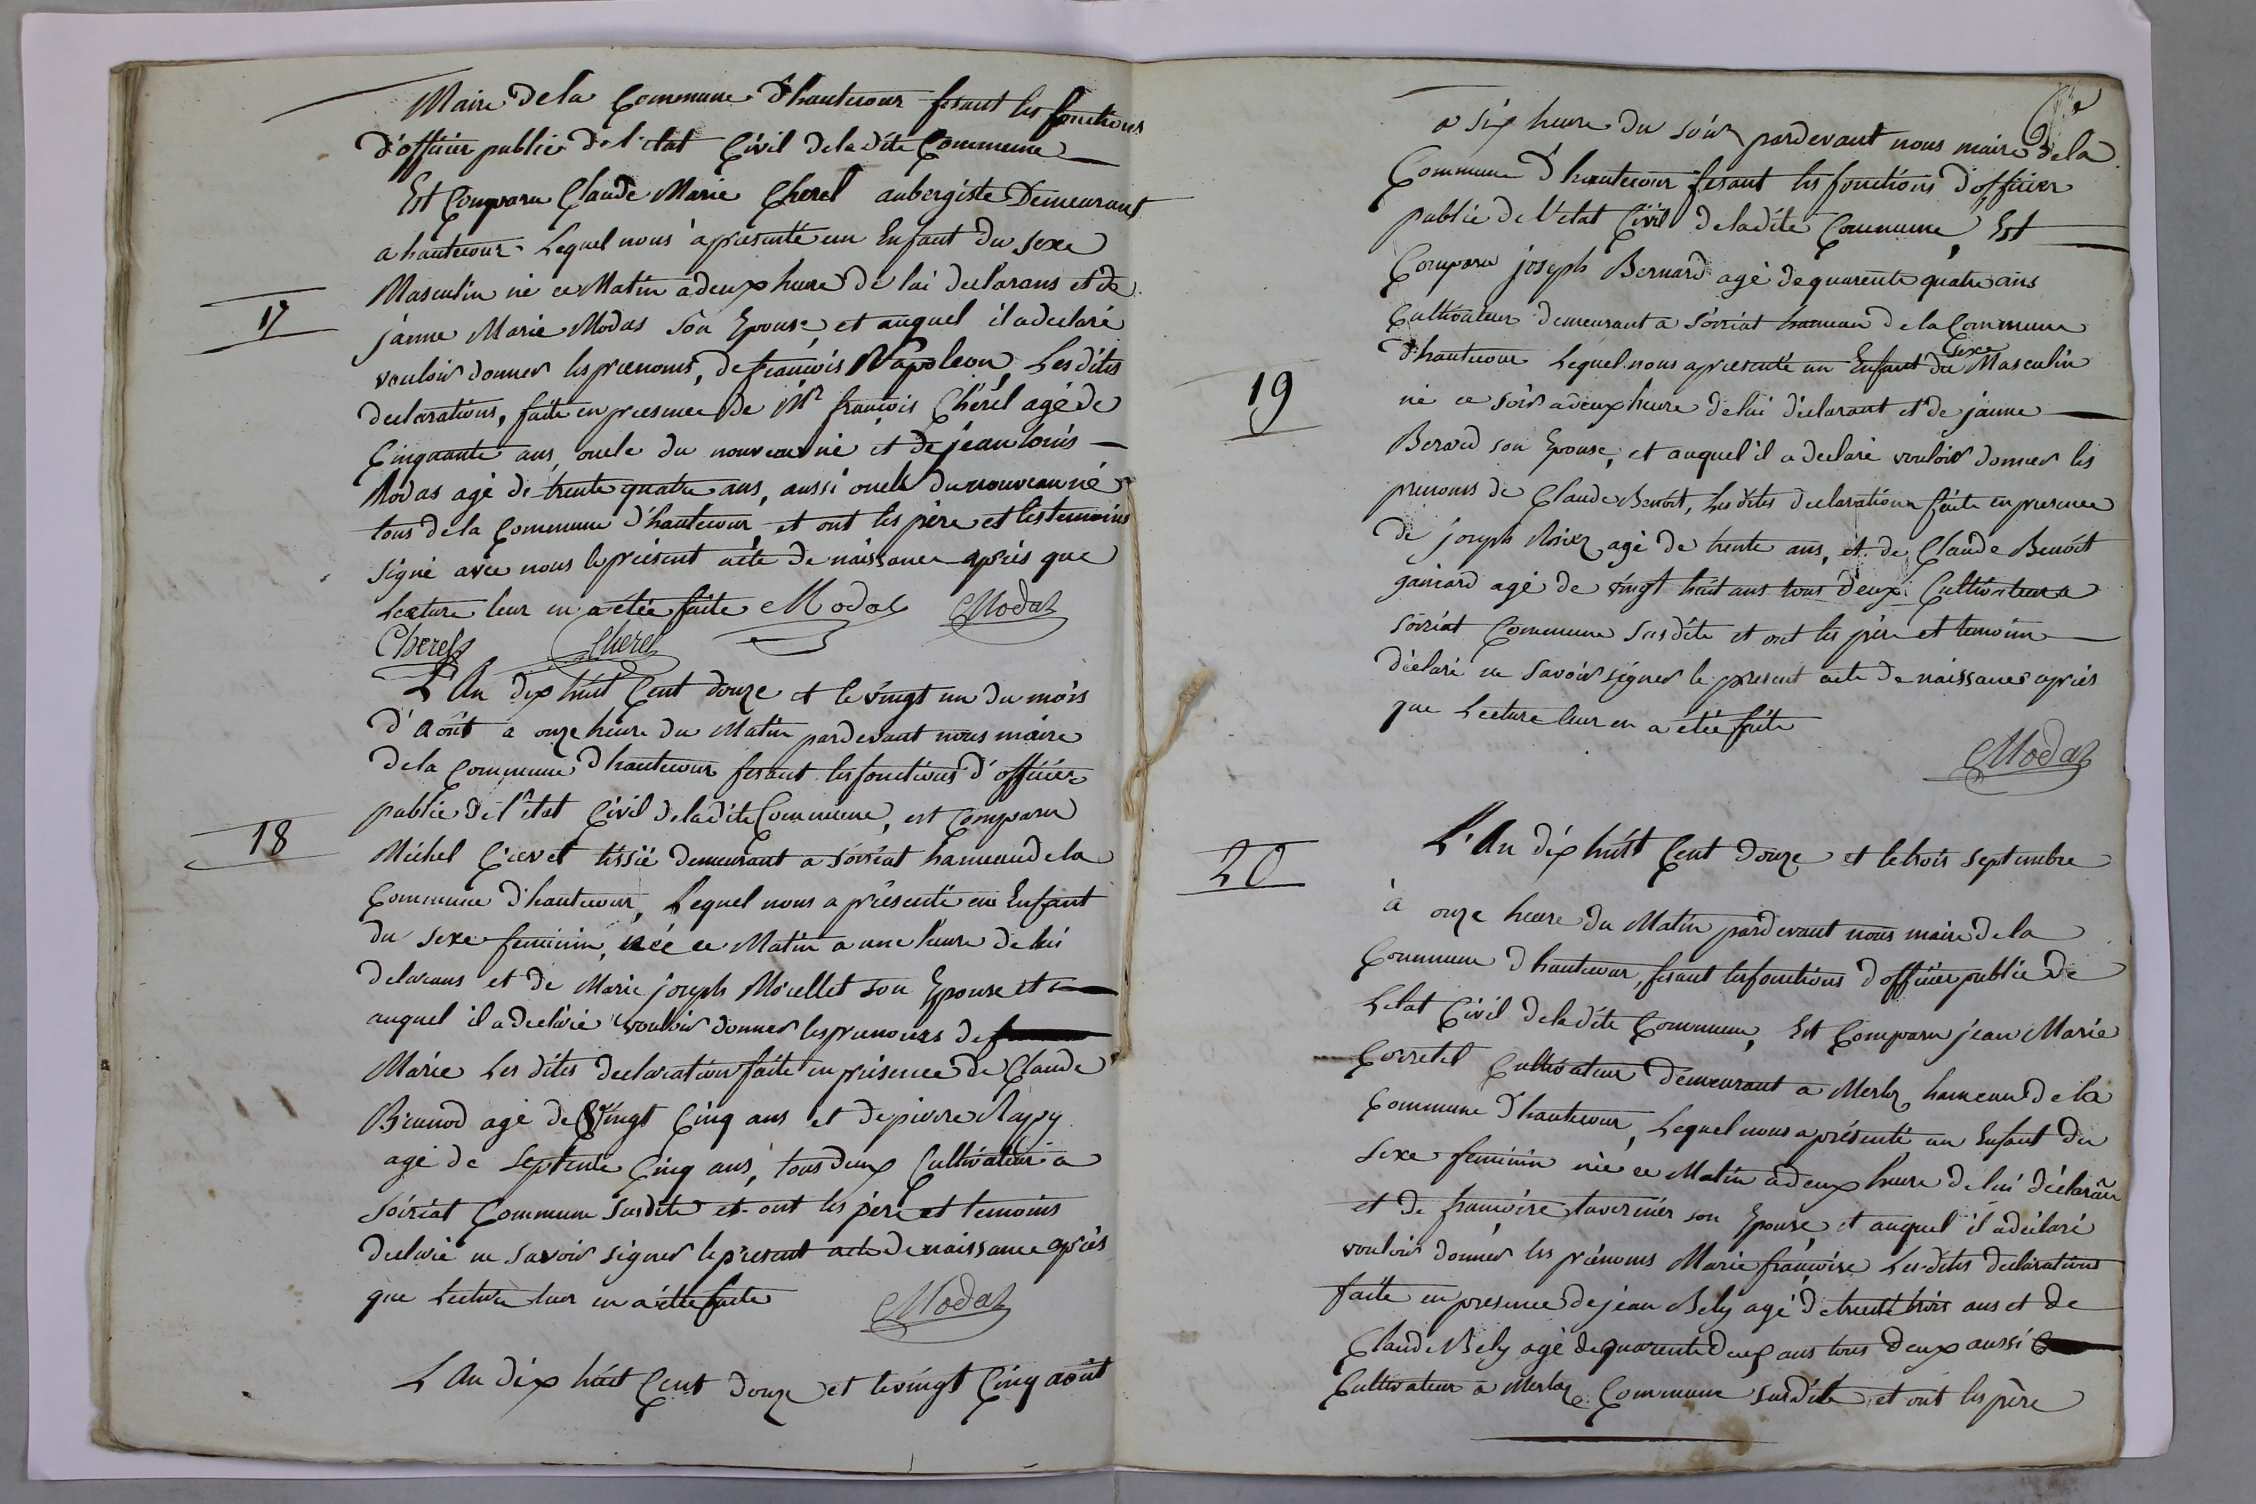 Maire de la Commune d'hautecour fesant les fonctions
d'officier public de l'etat Civil de la dite Commune
Est Comparu Claude Marie Cherel aubergiste Demeurant
a hautecour Lequel nous a presenté un Enfant du sexe
Masculin né ce Matin a deux heure de lui declarans et de
17
janne Marie Modas son Epouse, et auquel il a declaré
vouloir donner les prenoms, de françois Napoleon, Les dites
declarations, faite en presence de Mr françois Cherel agé de
Cinquante ans, oncle du nouveau né et de jean louis
Modas agé de trente quatre ans, aussi oncle du nouveau né
tous de la Commune d'hautecour, et ont les père et les temoins
signé avec nous le présent acte de naissance après que
Lecture leur en a étée faite Modas CModas
Cherel Cherel
L'An dix huit Cent douze et le vingt un du mois
d'Août a onze heure du Matin pardevant nous maire
de la Commune d'hautecour fesant les fonctions d'officier
public de l'état Civil de la dite Commune, est Comparu
18
Michel tissié demeurant a soiriat hameau de la
Commune d'hautecour, Lequel nous a présenté un Enfant
du sexe feminin, née ce Matin a une heure de lui
delarans et de Marie joseph Morellet son Epouse et
auquel il a declaré vouloir donner les prenoms de
Marie Les dites declaration faite en présence de Claude
Brunod agé de Vingt Cinq ans et de pierre Rappy
agé de Septente Cinq ans, tous deux Cultivateur a
soiriat Commune Susdite et ont les père et temoins
declaré ne savoir signer le present acte de naissance après
que Lecture leur en a étée faite CModas
L'An dix huit Cent douze et le vingt Cinq août
a six heure du soir pardevant nous maire de la
Commune d'hautecour fesant les fonctions d'officier
public de l'etat Civil de la dite Commune, Est
Comparu joseph Bernard agé de quarente quatre ans
Cultivateur demeurant a Soiriat hameau de la Commune
sexe
d'hautecour Lequel nous a presenté un Enfant du Masculin
19
né ce soir a deux heure de lui déclarant et de janne
Berard son Epouse, et auquel il a declaré vouloir donner les
prenoms de Claude Benoit, Les dites declaration faite en presence
de joseph Rosier agé de trente ans, et de Claude Benoit
agé de vingt huit ans tous deux Cultivateur a
soiriat Commune Susdite et ont les père et temoins
déclaré ne savoir signer le present acte de naissance après
que Lecture leur en a étée faite
CModas
20
L'An dix huit Cent douze et le trois septembre
à onze heure du Matin pardevant nous maire de la
Commune d'hautecour, fesant les fonctions d'officier public de
Letat Civil de la dite Commune, Est Comparu jean Marie
Corretel Cultivateur demeurant a Merloz hameau de la
Commune d'hautecour, Lequel nous a présenté un Enfant du
sexe feminin née ce Matin a deux heure de lui déclarãn
et de françoise tavernier son Epouse, et auquel il a déclaré
vouloir donner les prénoms Marie françoise Les dites declarations
faite en presence de jean Bely agé de trente trois ans et de
Claude Bely agé de quarente deux ans tous deux aussi
Cultivateur a Merloz Commune susdite et ont les père